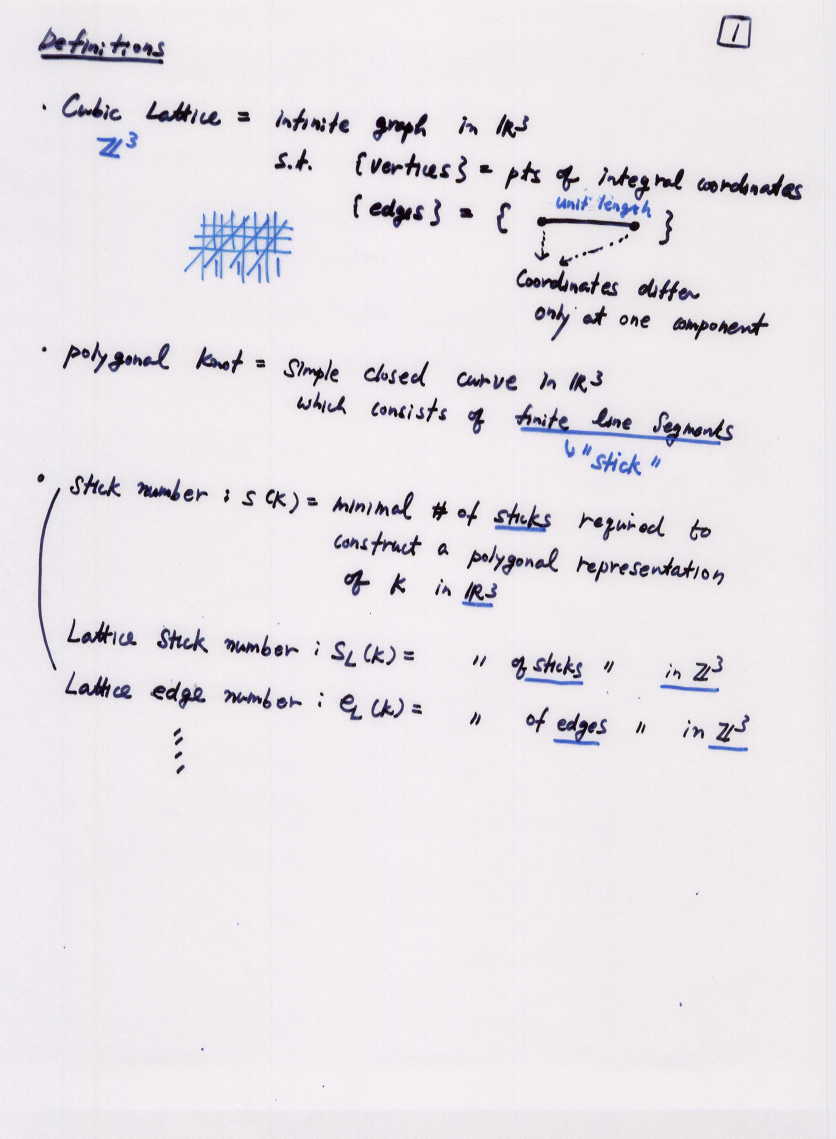 1
Definitions
· Cubic Lattice = infinite graph in ℝ³
ℤ³
s.t. {vertices} = pts of integral coordinates
unit length
{edges} = { }
Coordinates differ
only at one component
· polygonal knot = simple closed curve in ℝ³
which consists of finite line segments
↳ "stick"
· Stick number : s(K) = minimal # of sticks required to
construct a polygonal representation
of K in ℝ³
Lattice Stick number : S_L(K) = " of sticks " in ℤ³
Lattice edge number : e_L(K) = " of edges " in ℤ³